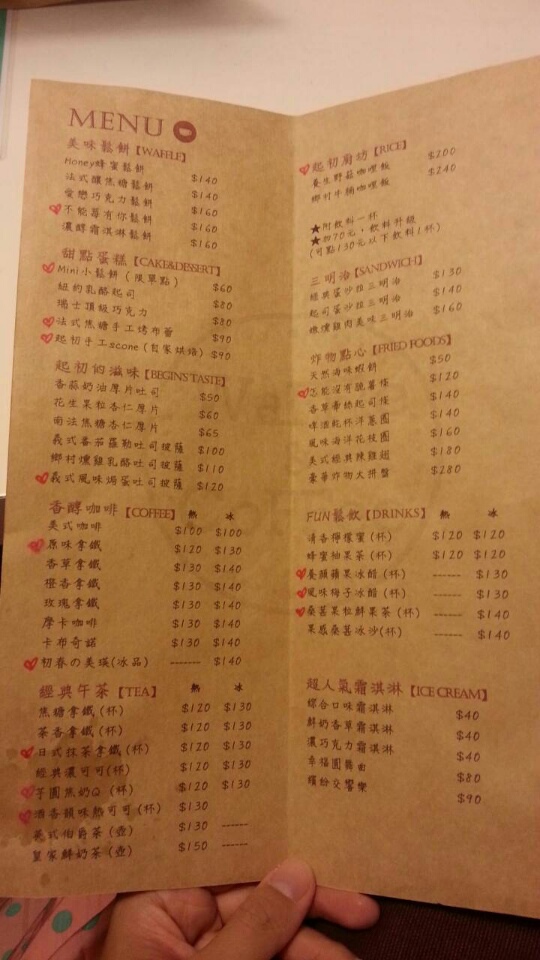 MENU
美味鬆餅【WAFFLE】
Honey蜂蜜鬆餅 $140
法式釀焦糖鬆餅 $140
愛戀巧克力鬆餅 $160
不能易有你鬆餅 $160
濃醇霜淇淋鬆餅
甜點蛋糕【CAKE&DESSERT】
Mini小鬆餅（限單點） $60
紐約乳酪起司 $80
瑞士頂級巧克力 $80
法式焦糖手工烤布蕾 $90
起初手工scone（自家烘焙） $90
起初的滋味【BEGIN'S TASTE】
香蒜奶油厚片吐司 $50
花生果粒杏仁厚片 $60
南法焦糖杏仁厚片 $65
義式番茄羅勒吐司披薩 $100
鄉村燻雞乳酪吐司披薩 $110
義式風味焗蛋吐司披薩 $120
香醇咖啡【COFFEE】 熱 冰
美式咖啡 $100 $100
原味拿鐵 $120 $130
香草拿鐵 $130 $140
橙香拿鐵 $130 $140
玫瑰拿鐵 $130 $140
摩卡咖啡 $130 $140
卡布奇諾 $130 $140
初春の美瑛(冰品) ------- $140
經典午茶【TEA】 熱 冰
焦糖拿鐵(杯) $120 $130
茶香拿鐵(杯) $120 $130
日式抹茶拿鐵(杯) $120 $130
經典濃可可(杯) $120 $130
芋圓焦奶Q(杯) $120 $130
酒香韻味熱可可(杯) $130
英式伯爵茶(壺) $130 ------
皇家鮮奶茶(壺) $150 ------
起初廚坊【RICE】
養生野菇咖哩飯 $200
鄉村牛腩咖哩飯 $240
★附飲料一杯
★加70元，飲料升級
(可點130元以下飲料1杯)
三明治【SANDWICH】
經典蛋沙拉三明治 $130
起司蛋沙拉三明治 $140
燻雞肉美味三明治 $160
炸物點心【FRIED FOODS】
天然海味蝦餅 $50
怎能沒有脆薯條 $120
香草帶絲起司條 $140
啤酒乾杯洋蔥圈 $140
風味海洋花枝圈 $160
美式經典辣雞翅 $180
豪華炸物大拼盤 $280
FUN鬆飲【DRINKS】 熱 冰
清香檸檬蜜(杯) $120 $120
蜂蜜柚果茶(杯) $120 $120
養顏蘋果冰醋(杯) ------ $130
風味梅子冰醋(杯) ------ $130
桑葚果粒鮮果茶(杯) ------ $140
果感桑葚冰沙(杯) ------ $140
超人氣霜淇淋【ICE CREAM】
綜合口味霜淇淋 $40
鮮奶香草霜淇淋 $40
濃巧克力霜淇淋 $40
幸福圓舞曲 $80
繽紛交響樂 $90